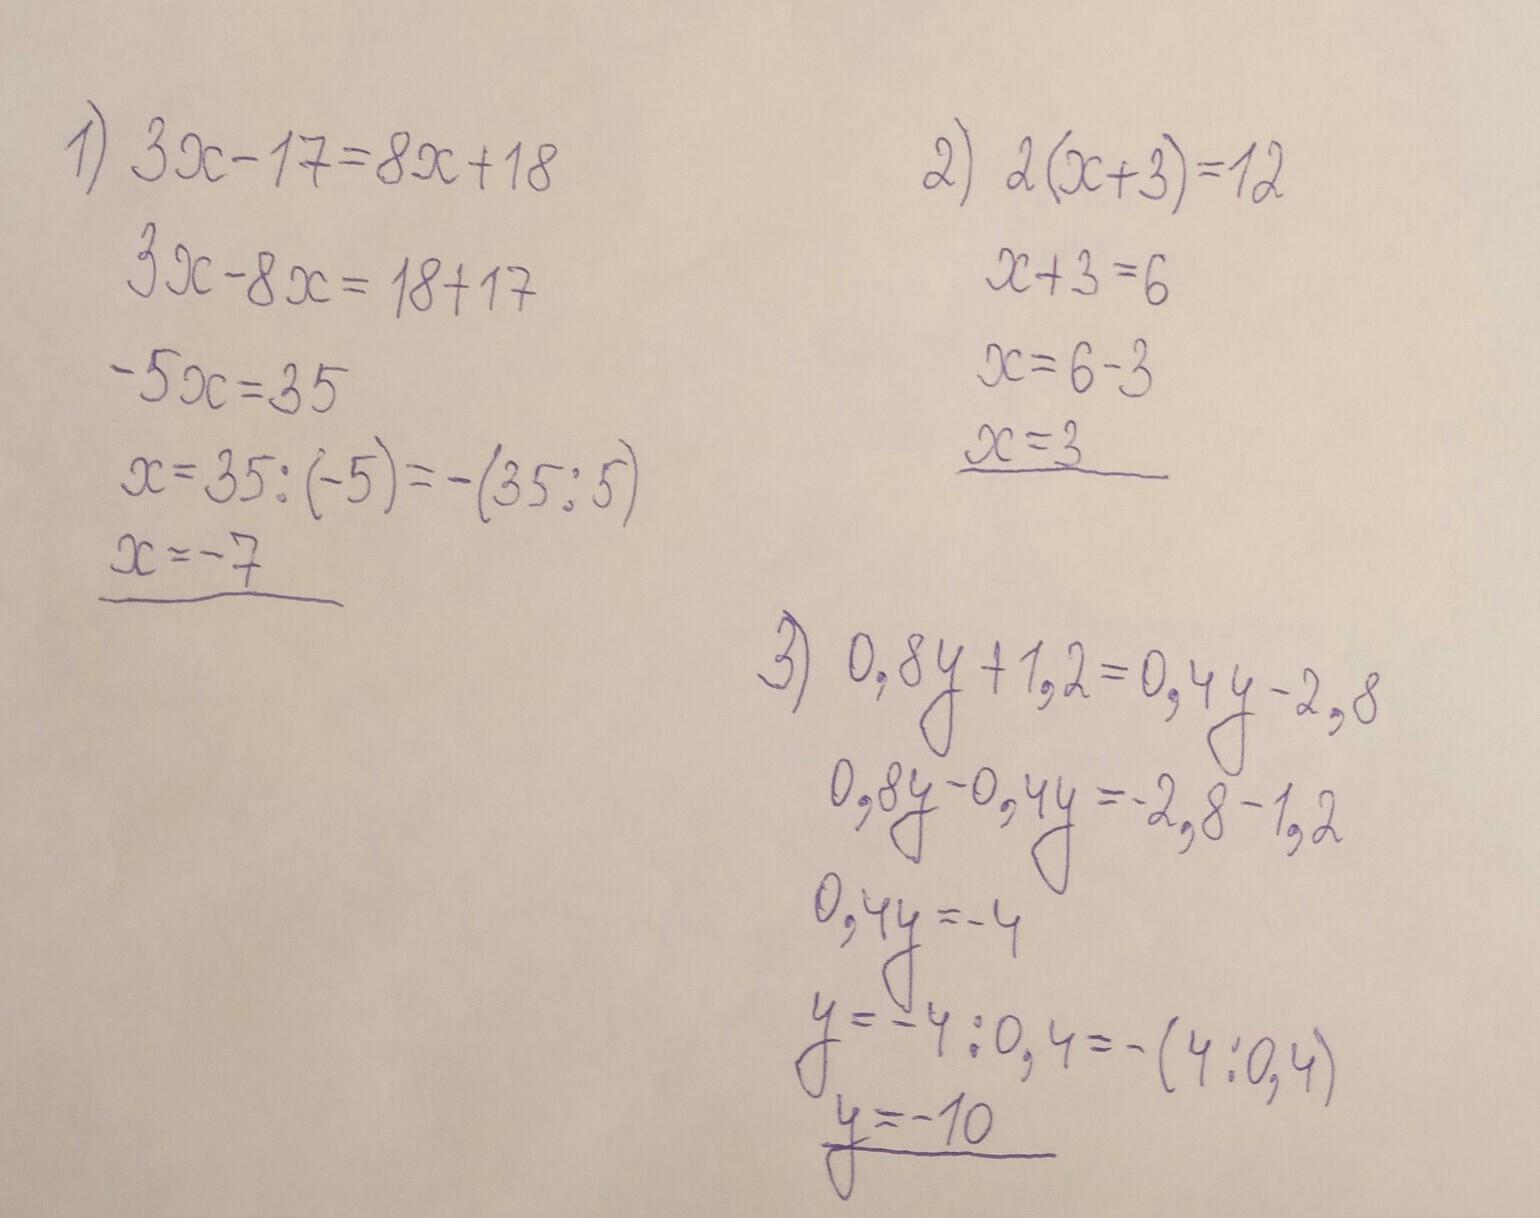 1) 3x-17=8x+18
3x-8x=18+17
-5x=35
x=35:(-5)=-(35:5)
x=-7
2) 2(x+3)=12
x+3=6
x=6-3
x=3
3) 0,8y+1,2=0,4y-2,8
0,8y-0,4y=-2,8-1,2
0,4y=-4
y=-4:0,4=-(4:0,4)
y=-10